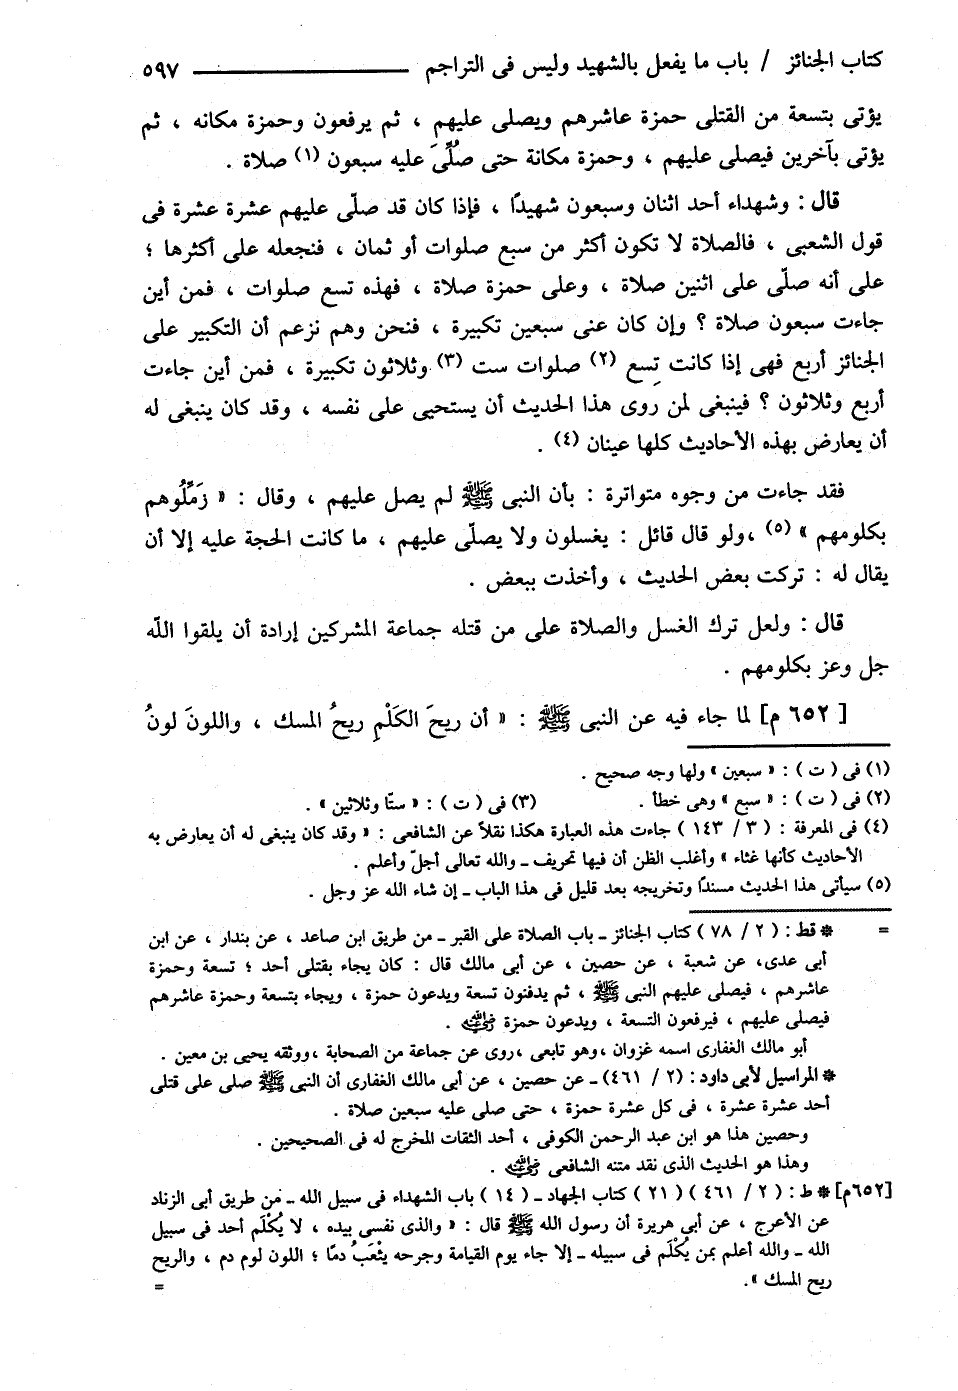 كتاب الجنائز / باب ما يفعل بالشهيد وليس فى التراجم ــــــــــ ٥٩٧
يؤتى بتسعة من القتلى حمزة عاشرهم ويصلى عليهم ، ثم يرفعون وحمزة مكانه ، ثم
يؤتى بآخرين فيصلى عليهم ، وحمزة مكانة حتى صُلِّىَ عليه سبعون (١) صلاة .
قال : وشهداء أحد اثنان وسبعون شهيدًا ، فإذا كان قد صلّى عليهم عشرة عشرة فى
قول الشعبى ، فالصلاة لا تكون أكثر من سبع صلوات أو ثمان ، فنجعله على أكثرها ؛
على أنه صلّى على اثنين صلاة ، وعلى حمزة صلاة ، فهذه تسع صلوات ، فمن أين
جاءت سبعون صلاة ؟ وإن كان عنى سبعين تكبيرة ، فنحن وهم نزعم أن التكبير على
الجنائز أربع فهى إذا كانت تسع (٢) صلوات ست (٣) وثلاثون تكبيرة ، فمن أين جاءت
أربع وثلاثون ؟ فينبغى لمن روى هذا الحديث أن يستحيى على نفسه ، وقد كان ينبغى له
أن يعارض بهذه الأحاديث كلها عينان (٤) .
فقد جاءت من وجوه متواترة : بأن النبى ﷺ لم يصل عليهم ، وقال : « زَمِّلُوهم
بكلومهم » (٥) ،ولو قال قائل : يغسلون ولا يصلّى عليهم ، ما كانت الحجة عليه إلا أن
يقال له : تركت بعض الحديث ، وأخذت ببعض .
قال : ولعل ترك الغسل والصلاة على من قتله جماعة المشركين إرادة أن يلقوا اللّه
جل وعز بكلومهم .
[ ٦٥٢ م] لما جاء فيه عن النبى ﷺ : « أن ريحَ الكَلْمِ ريحُ المسك ، واللونَ لونُ
(١) فى ( ت ) : « سبعين » ولها وجه صحيح .
(٢) فى ( ت ) : « سبع » وهى خطأ . (٣) فى ( ت ) : « ستًا وثلاثين » .
(٤) فى المعرفة : ( ٣ / ١٤٣ ) جاءت هذه العبارة هكذا نقلاً عن الشافعى : « وقد كان ينبغى له أن يعارض به
الأحاديث كأنها غثاء » وأغلب الظن أن فيها تحريف ـ والله تعالى أجلّ وأعلم .
(٥) سيأتى هذا الحديث مسندًا وتخريجه بعد قليل فى هذا الباب ـ إن شاء الله عز وجل .
= * قط : ( ٢ / ٧٨ ) كتاب الجنائز ـ باب الصلاة على القبر ـ من طريق ابن صاعد ، عن بندار ، عن ابن
أبى عدى، عن شعبة ، عن حصين ، عن أبى مالك قال : كان يجاء بقتلى أحد ؛ تسعة وحمزة
عاشرهم ، فيصلى عليهم النبى ﷺ ، ثم يدفنون تسعة ويدعون حمزة ، ويجاء بتسعة وحمزة عاشرهم
فيصلى عليهم ، فيرفعون التسعة ، ويدعون حمزة رضي الله عنه .
أبو مالك الغفارى اسمه غزوان ،وهو تابعى ،روى عن جماعة من الصحابة ،ووثقه يحيى بن معين .
* المراسيل لأبى داود : (٢ / ٤٦١) ـ عن حصين ، عن أبى مالك الغفارى أن النبى ﷺ صلى على قتلى
أحد عشرة عشرة ، فى كل عشرة حمزة ، حتى صلى عليه سبعين صلاة .
وحصين هذا هو ابن عبد الرحمن الكوفى ، أحد الثقات المخرج له فى الصحيحين .
وهذا هو الحديث الذى نقد متنه الشافعى رضي الله عنه .
[٦٥٢م] * ط : ( ٢ / ٤٦١ ) ( ٢١ ) كتاب الجهاد ـ ( ١٤ ) باب الشهداء فى سبيل الله ـ من طريق أبى الزناد
عن الأعرج ، عن أبى هريرة أن رسول الله ﷺ قال : « والذى نفسى بيده ، لا يُكْلَم أحد فى سبيل
الله ـ والله أعلم بمن يُكْلَم فى سبيله ـ إلا جاء يوم القيامة وجرحه يثْعَبُ دمًا ؛ اللون لوم دم ، والريح
ريح المسك ». =